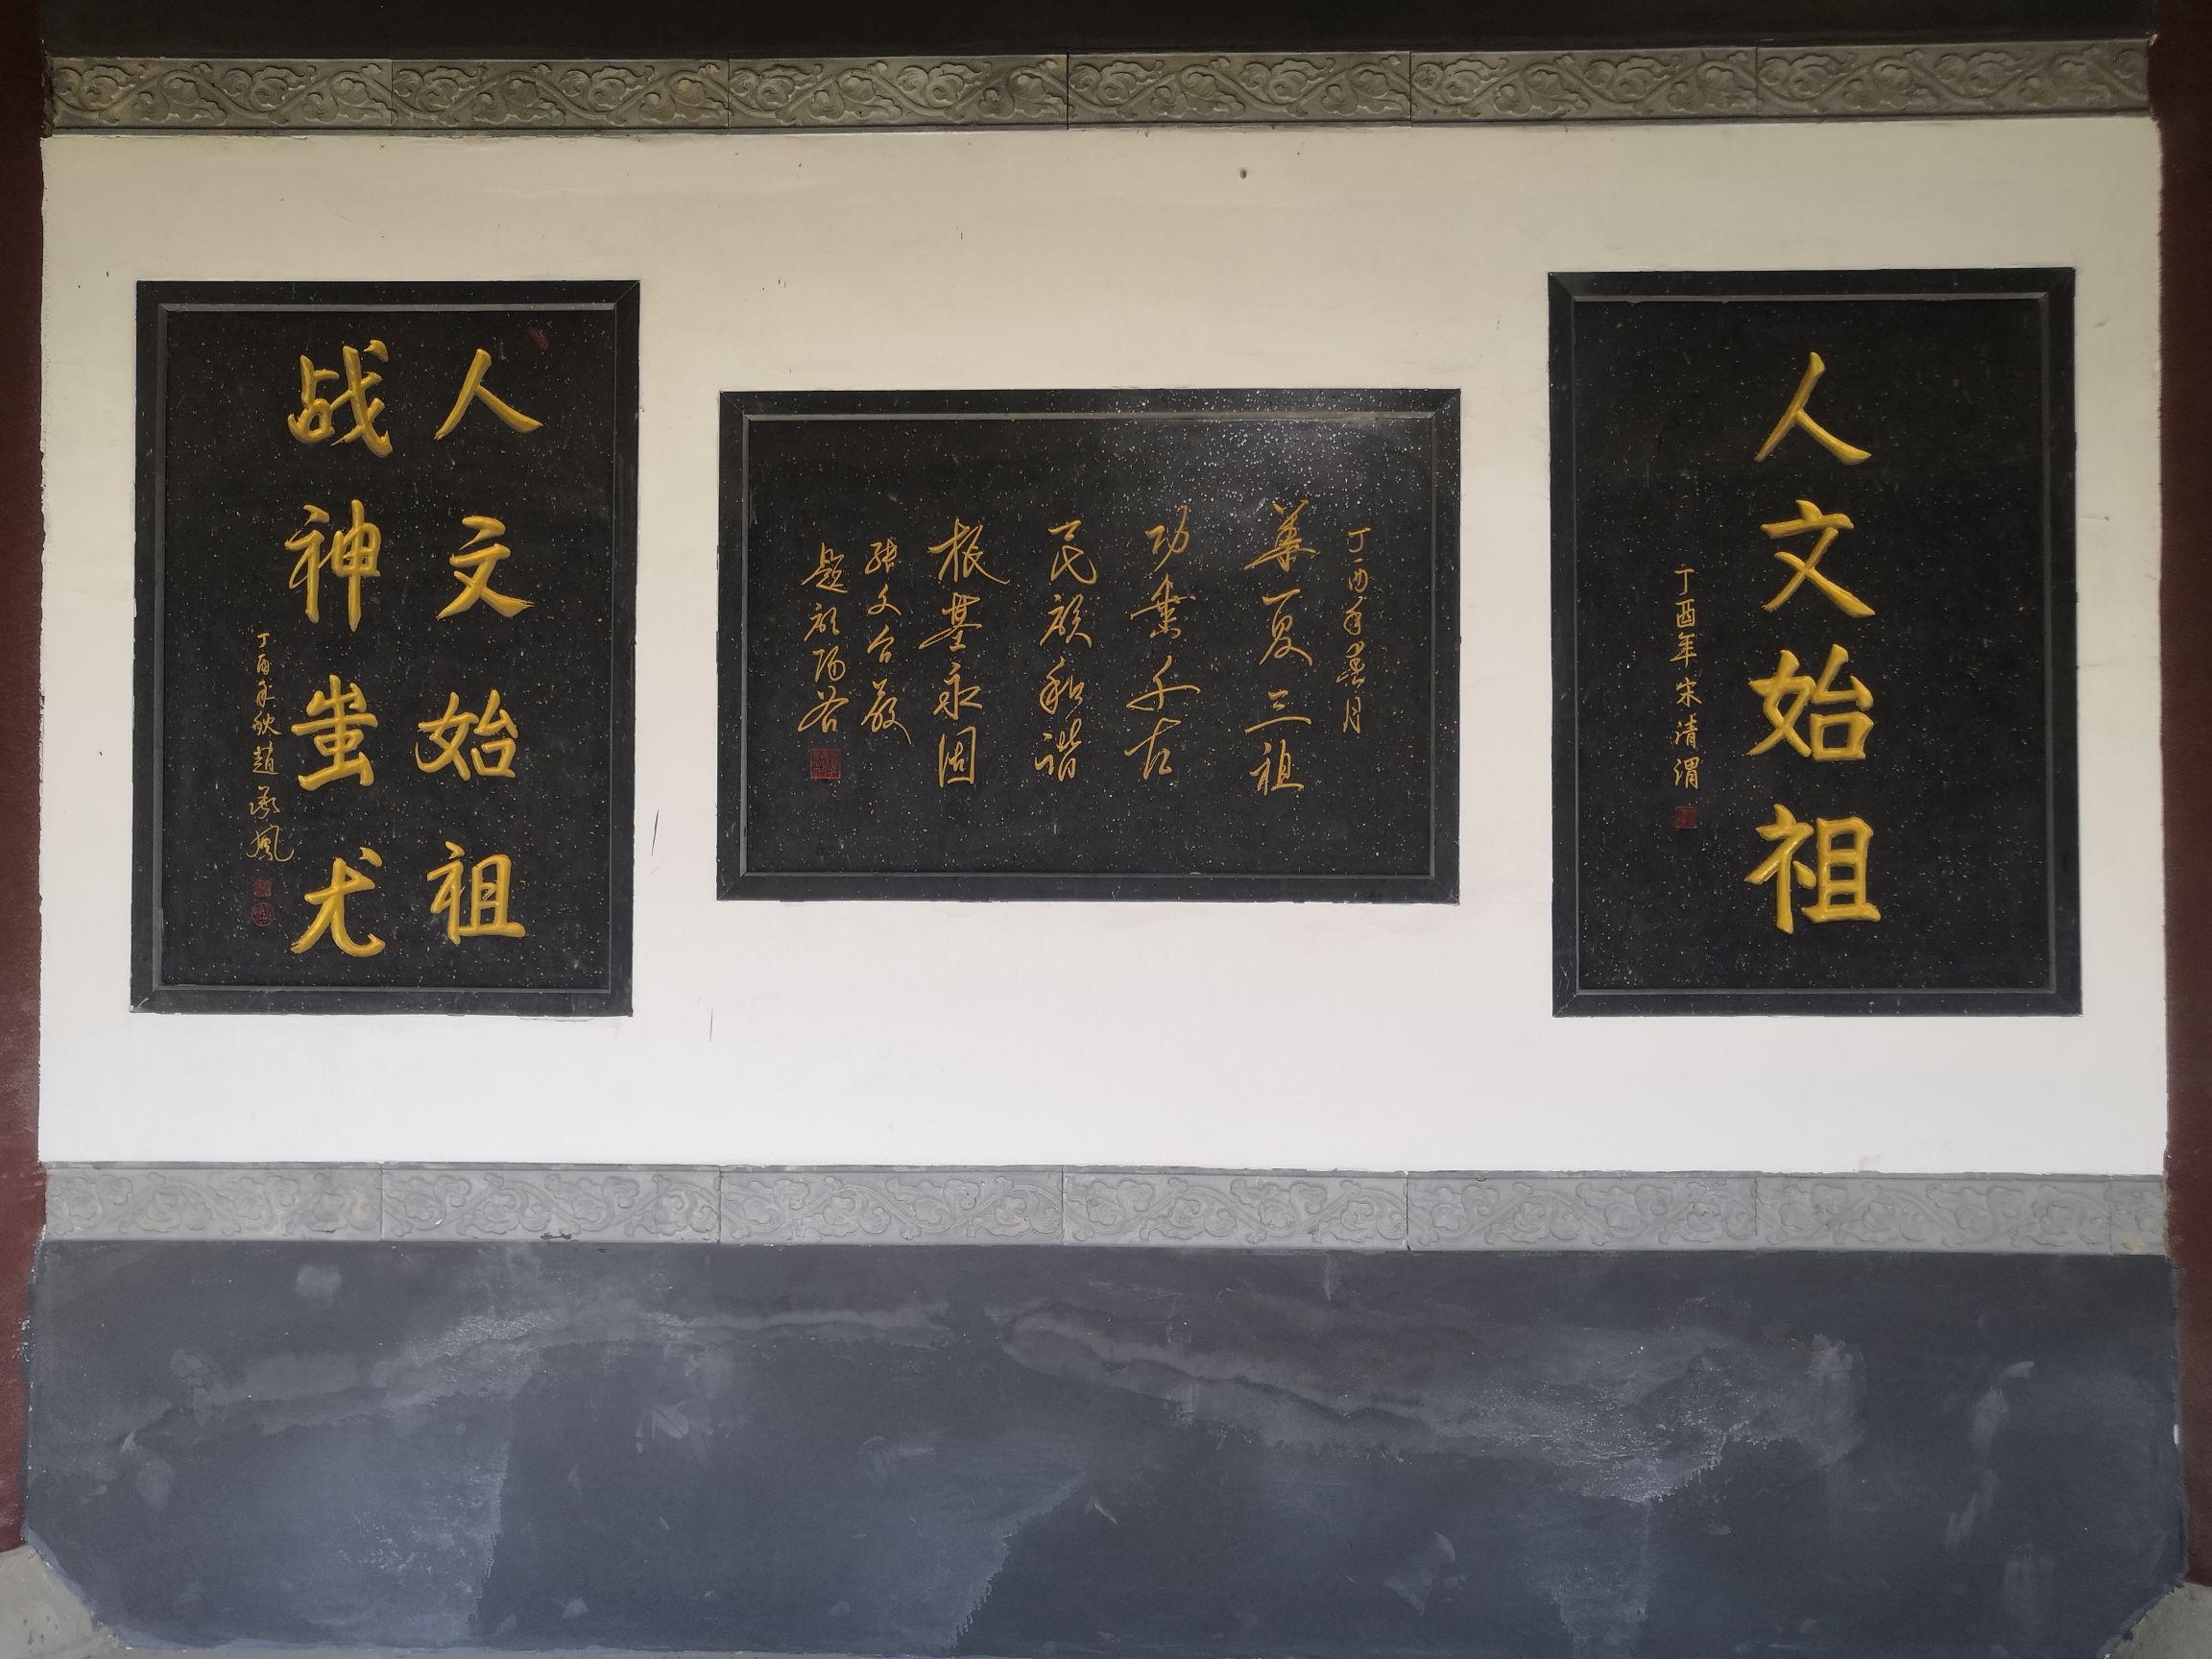 人文始祖
丁酉年宋清渭
丁酉年春月
华夏三祖
功业千古
民族和谐
根基永固
张文台敬
题于阳谷
人文始祖
战神蚩尤
丁酉年秋赵承凤